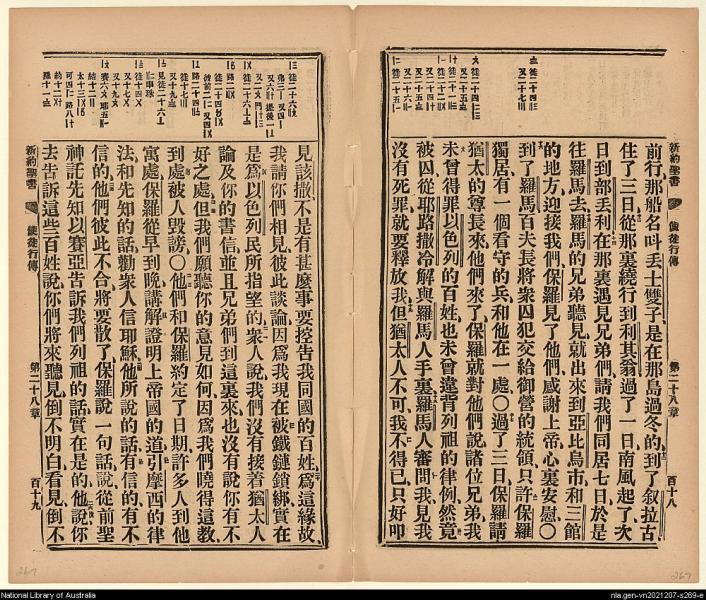 前行、那船名叫丢士雙子、是在那島過冬的、到了叙拉古
住了三日、從那裏繞行到利其翁、過了一日、南風起了、次
日到部丢利、在那裏遇見兄弟們、請我們同居七日、於是
往羅馬去、羅馬的兄弟聽見、就出來到亞比烏市和三館
的地方迎接我們、保羅見了他們、感謝上帝、心裏安慰○
到了羅馬、百夫長將衆囚犯交給御營的統領、只許保羅
獨居、有一個看守的兵和他在一處○過了三日、保羅請
猶太的尊長來、他們來了、保羅就對他們說、諸位兄弟、我
未曾得罪以色列的百姓、也未曾違背列祖的律例、然竟
被囚、從耶路撒冷解與羅馬人手裏、羅馬人審問我、見我
沒有死罪、就要釋放我、但猶太人不可、我不得已、只好叩
新約聖書
使徒行傳
第二十八章
百十八
見該撒、不是有甚麽事要控告我同國的百姓、爲這緣故、
我請你們相見、彼此談論、因爲我現在被鐵鏈鎖綁、實在
是爲以色列民所指望的、衆人說、我們沒有接着猶太人
論及你的書信、並且兄弟們到這裏來、也沒有說你有不
好之處、但我們願聽你的意見如何、因爲我們曉得這教
到處被人毀謗○他們和保羅約定了日期、許多人到他
寓處、保羅從早到晚、講解證明上帝國的道、引摩西的律
法和先知的話、勸衆人信耶穌、他所說的話、有信的、有不
信的、他們彼此不合、將要散了、保羅說一句話、說、從前聖
神託先知以賽亞告訴我們列祖的話、實在是的、他說、你
去告訴這些百姓說、你們將來聽見、倒不明白、看見、倒不
新約聖書
使徒行傳
第二十八章
百十九
267
267
National Library of Australia
nla.gen-vn2021207-s269-e